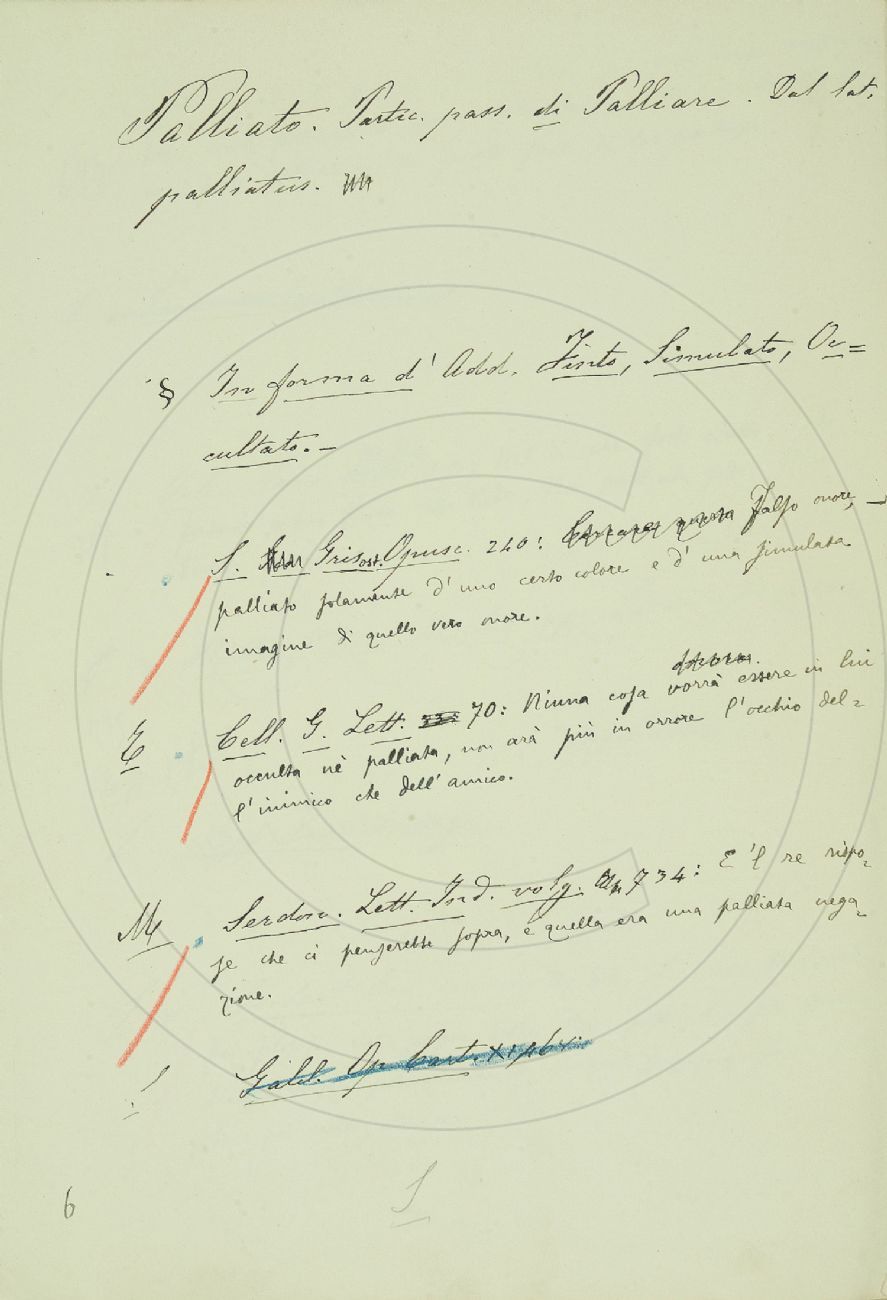 Palliato. Partic. pass. di Palliare. Dal lat.
palliatus.
§ In forma d' Add. Finto, Simulato, Oc=
cultato. —
S. Grisost. Opusc. 240: Falso onore, —
palliato solamente d' uno certo colore e d' una simulata
imagine di quello vero onore.
Cell. G. Lett. 70: Niuna cosa vorrà essere in lui
occulta nè palliata, non arà più in orrore l'occhio del=
l'inimico che dell' amico.
M Serdon. Lett. Ind. volg. 734: E 'l re rispo=
se che ci penserebbe sopra, e quella era una palliata nega=
zione.
! Galil. Op. Cart. XI,
6
S